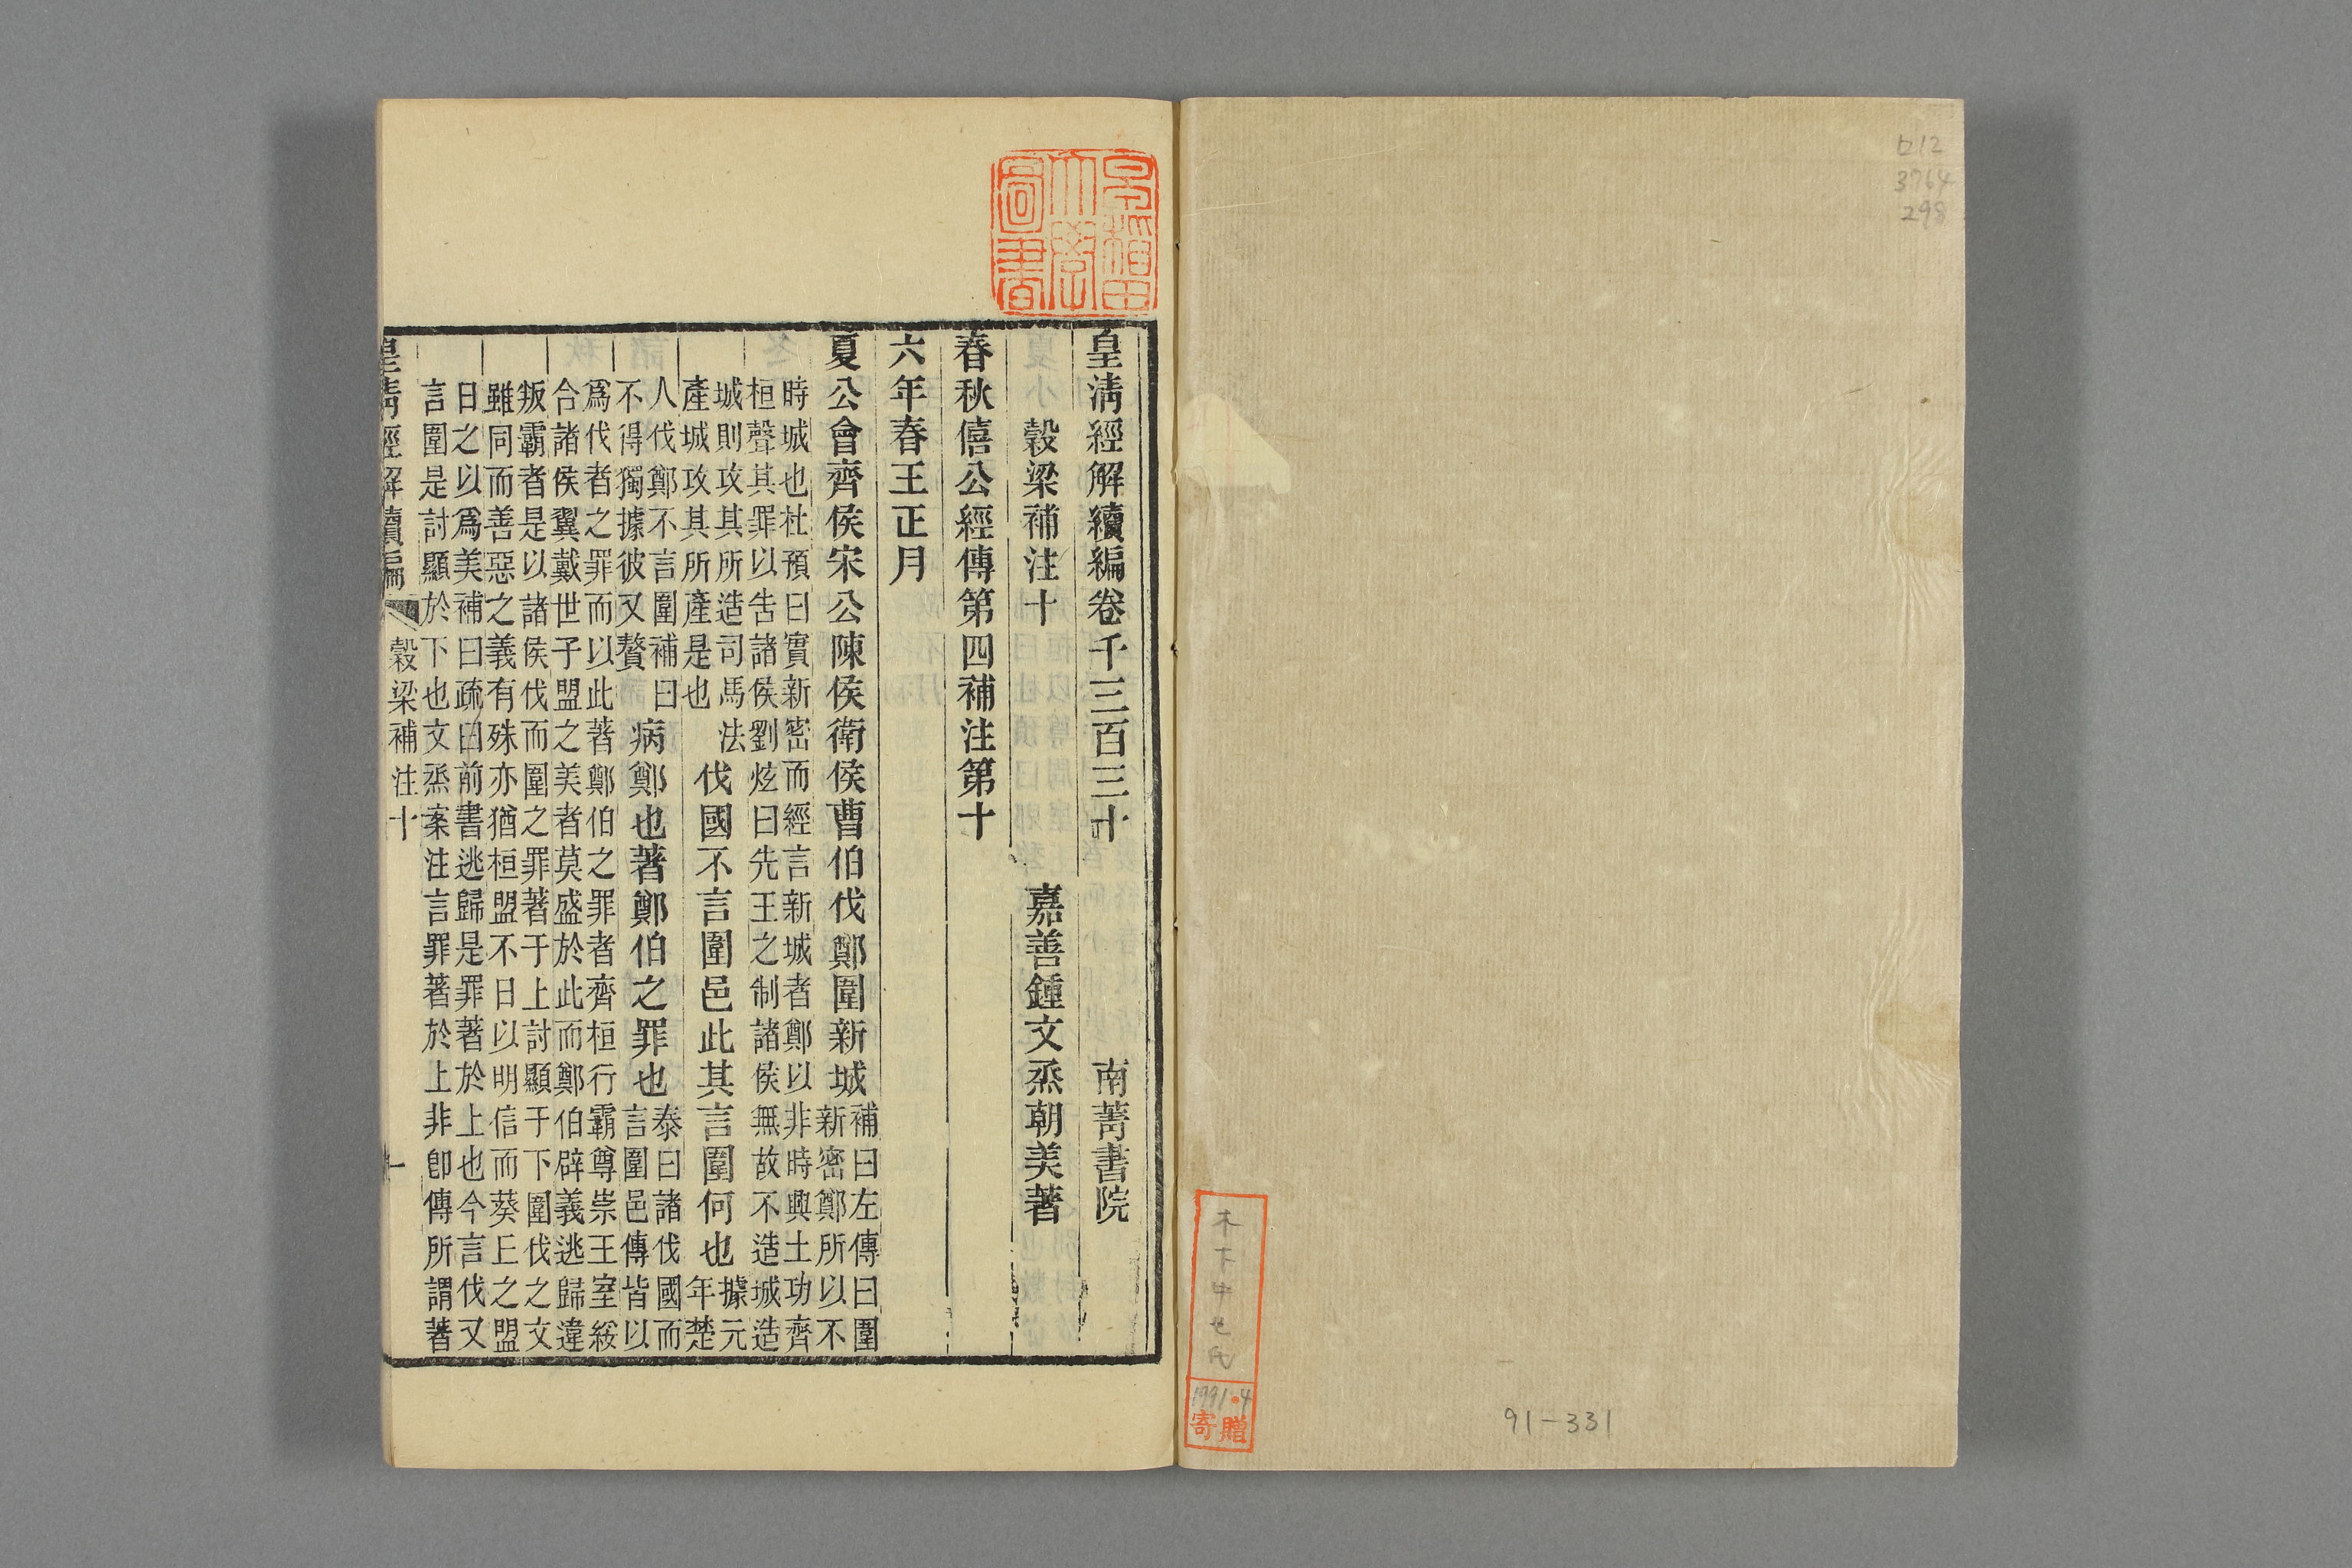 ロ12
3764
298
木下中也氏
1991・4
寄贈
91-331
早稲田大学図書
皇淸經解續編卷千三百三十 南菁書院
穀梁補注十 嘉善鍾文烝朝美著
春秋僖公經傳第四補注第十
六年春王正月
夏公會齊侯宋公陳侯衛侯曹伯伐鄭圍新城
補曰左傳曰圍
新密鄭所以不
時城也杜預曰實新密而經言新城者鄭以非時興土功齊
桓聲其罪以告諸侯劉炫曰先王之制諸侯無故不造城造
城則攻其所造司馬法
產城攻其所產是也
伐國不言圍邑此其言圍何也
據元
年楚
人伐鄭不言圍補曰
不得獨據彼又贅
病鄭也著鄭伯之罪也
泰曰諸伐國而
言圍邑傳皆以
爲伐者之罪而以此著鄭伯之罪者齊桓行霸尊崇王室綏
合諸侯翼戴世子盟之美者莫盛於此而鄭伯辟義逃歸違
叛霸者是以諸侯伐而圍之罪著于上討顯于下圍伐之文
雖同而善惡之義有殊亦猶桓盟不日以明信而葵丘之盟
日之以爲美補曰疏曰前書逃歸是罪著於上也今言伐又
言圍是討顯於下也文烝案注言罪著於上非卽傳所謂著
皇淸經解續編 穀梁補注十 一